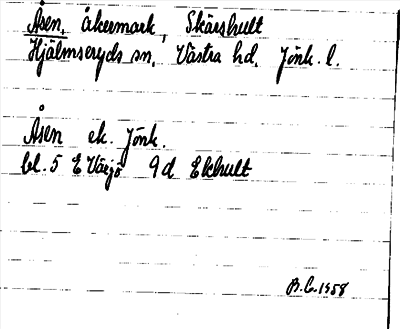 Åsen, åkermark, Skärshult
Hjälmseryds sn, Västra hd, Jönk. l.
Åsen ek. Jönk.
bl. 5 E Växjö 9d Ekhult
B.G. 1958